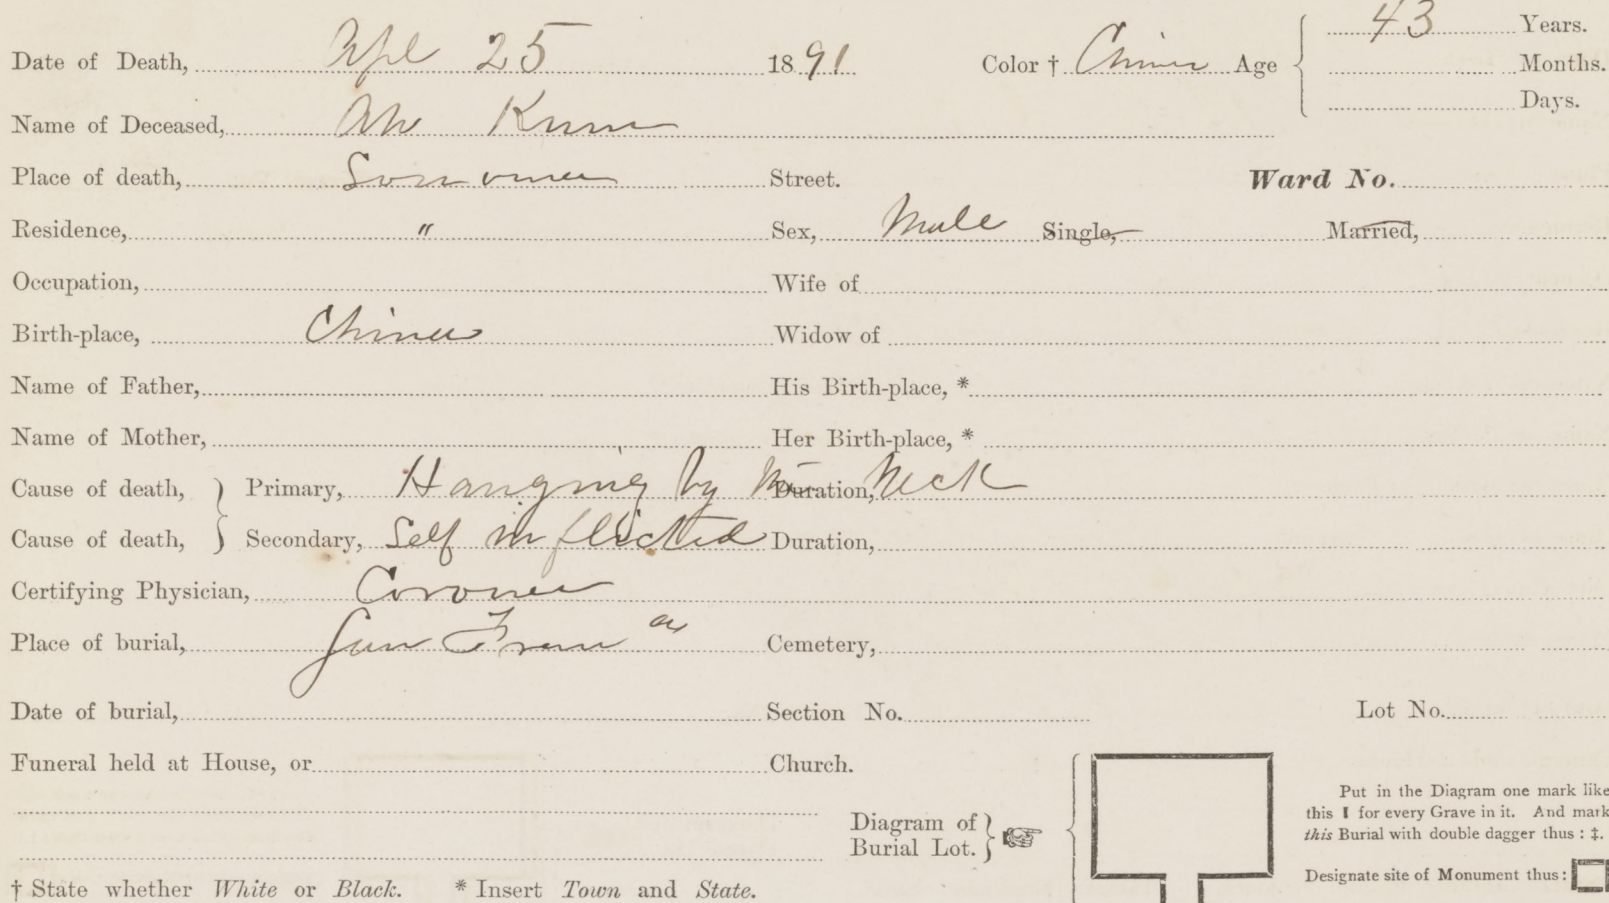 Date of Death, Apl 25 1891 Color † Chinese Age 43 Years.
Months.
Days.
Name of Deceased, Ah Kum
Place of death, Sonoma Street. Ward No.
Residence, " Sex, Male Single, Married,
Occupation, Wife of
Birth-place, China Widow of
Name of Father, His Birth-place, *
Name of Mother, Her Birth-place, *
Cause of death, Primary, Hanging by Duration, Neck
Cause of death, Secondary, Self inflicted Duration,
Certifying Physician, Coroner
Place of burial, San Fran Cemetery,
Date of burial, Section No. Lot No.
Funeral held at House, or Church.
Diagram of
Burial Lot.
Put in the Diagram one mark like
this ❙ for every Grave in it. And mark
this Burial with double dagger thus : ‡.
Designate site of Monument thus :
† State whether White or Black. * Insert Town and State.